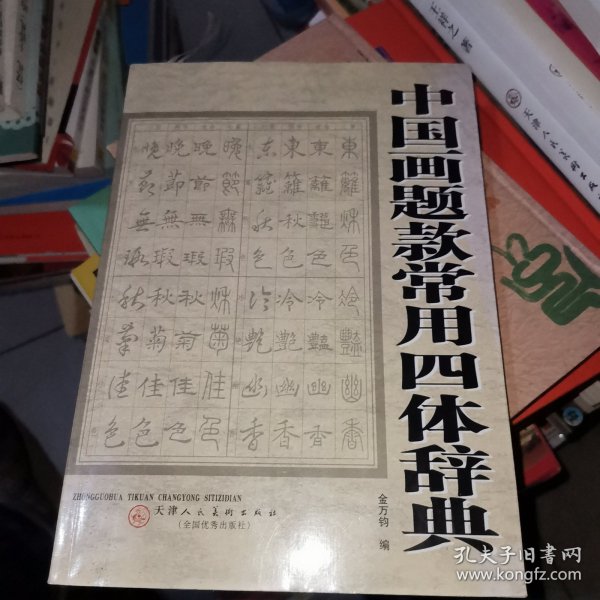 中国画题款常用四体辞典
東東東东
籬籬籬篱
秌秋秋秋
色色色色
冷冷冷冷
豔豔艷艳
幽幽幽幽
香香香香
晚晚晚晚
節節节节
無無無無
瑕瑕瑕瑕
秌秋秋秋
菊菊菊菊
佳佳佳佳
色色色色
金万钧 编
ZHONGGUOHUA TIKUAN CHANGYONG SITIZIDIAN
天津人民美术出版社
(全国优秀出版社)
天津人民美术出版
孔夫子旧书网
www.kongfz.com